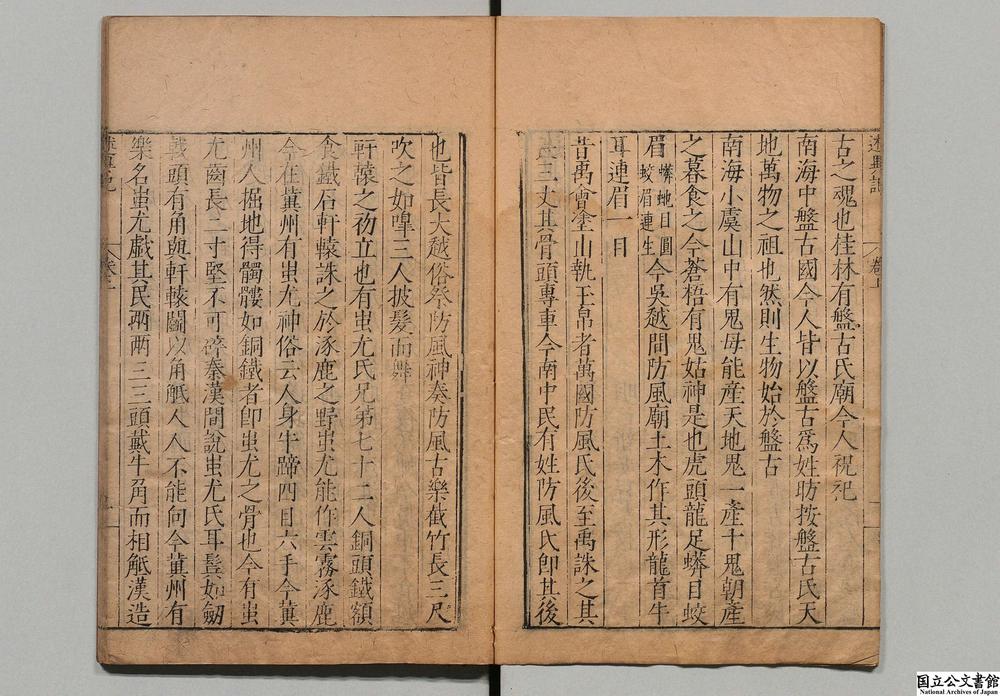 古之魂也桂林有盤古氏廟今人祝祀
南海中盤古國今人皆以盤古爲姓昉按盤古氏天
地萬物之祖也然則生物始於盤古
南海小虞山中有鬼母能產天地鬼一產十鬼朝產
之暮食之今蒼梧有鬼姑神是也虎頭龍足蟒目蛟
眉蟒虵目圓蛟眉連生今吳越間防風廟土木作其形龍首牛
耳連眉一目
昔禹會塗山執玉帛者萬國防風氏後至禹誅之其
長三丈其骨頭專車今南中民有姓防風氏即其後
也皆長大越俗祭防風神奏防風古樂截竹長三尺
吹之如嘷三人披髮而舞
軒轅之初立也有蚩尤氏兄弟七十二人銅頭鐵額
食鐵石軒轅誅之於涿鹿之野蚩尤能作雲霧涿鹿
今在冀州有蚩尤神俗云人身牛蹄四目六手今冀
州人掘地得髑髏如銅鐵者即蚩尤之骨也今有蚩
尤齒長二寸堅不可碎秦漢間說蚩尤氏耳鬢如劒
戟頭有角與軒轅鬭以角觝人人不能向今冀州有
樂名蚩尤戲其民兩兩三三頭戴牛角而相觝漢造
国立公文書館
National Archives of Japan